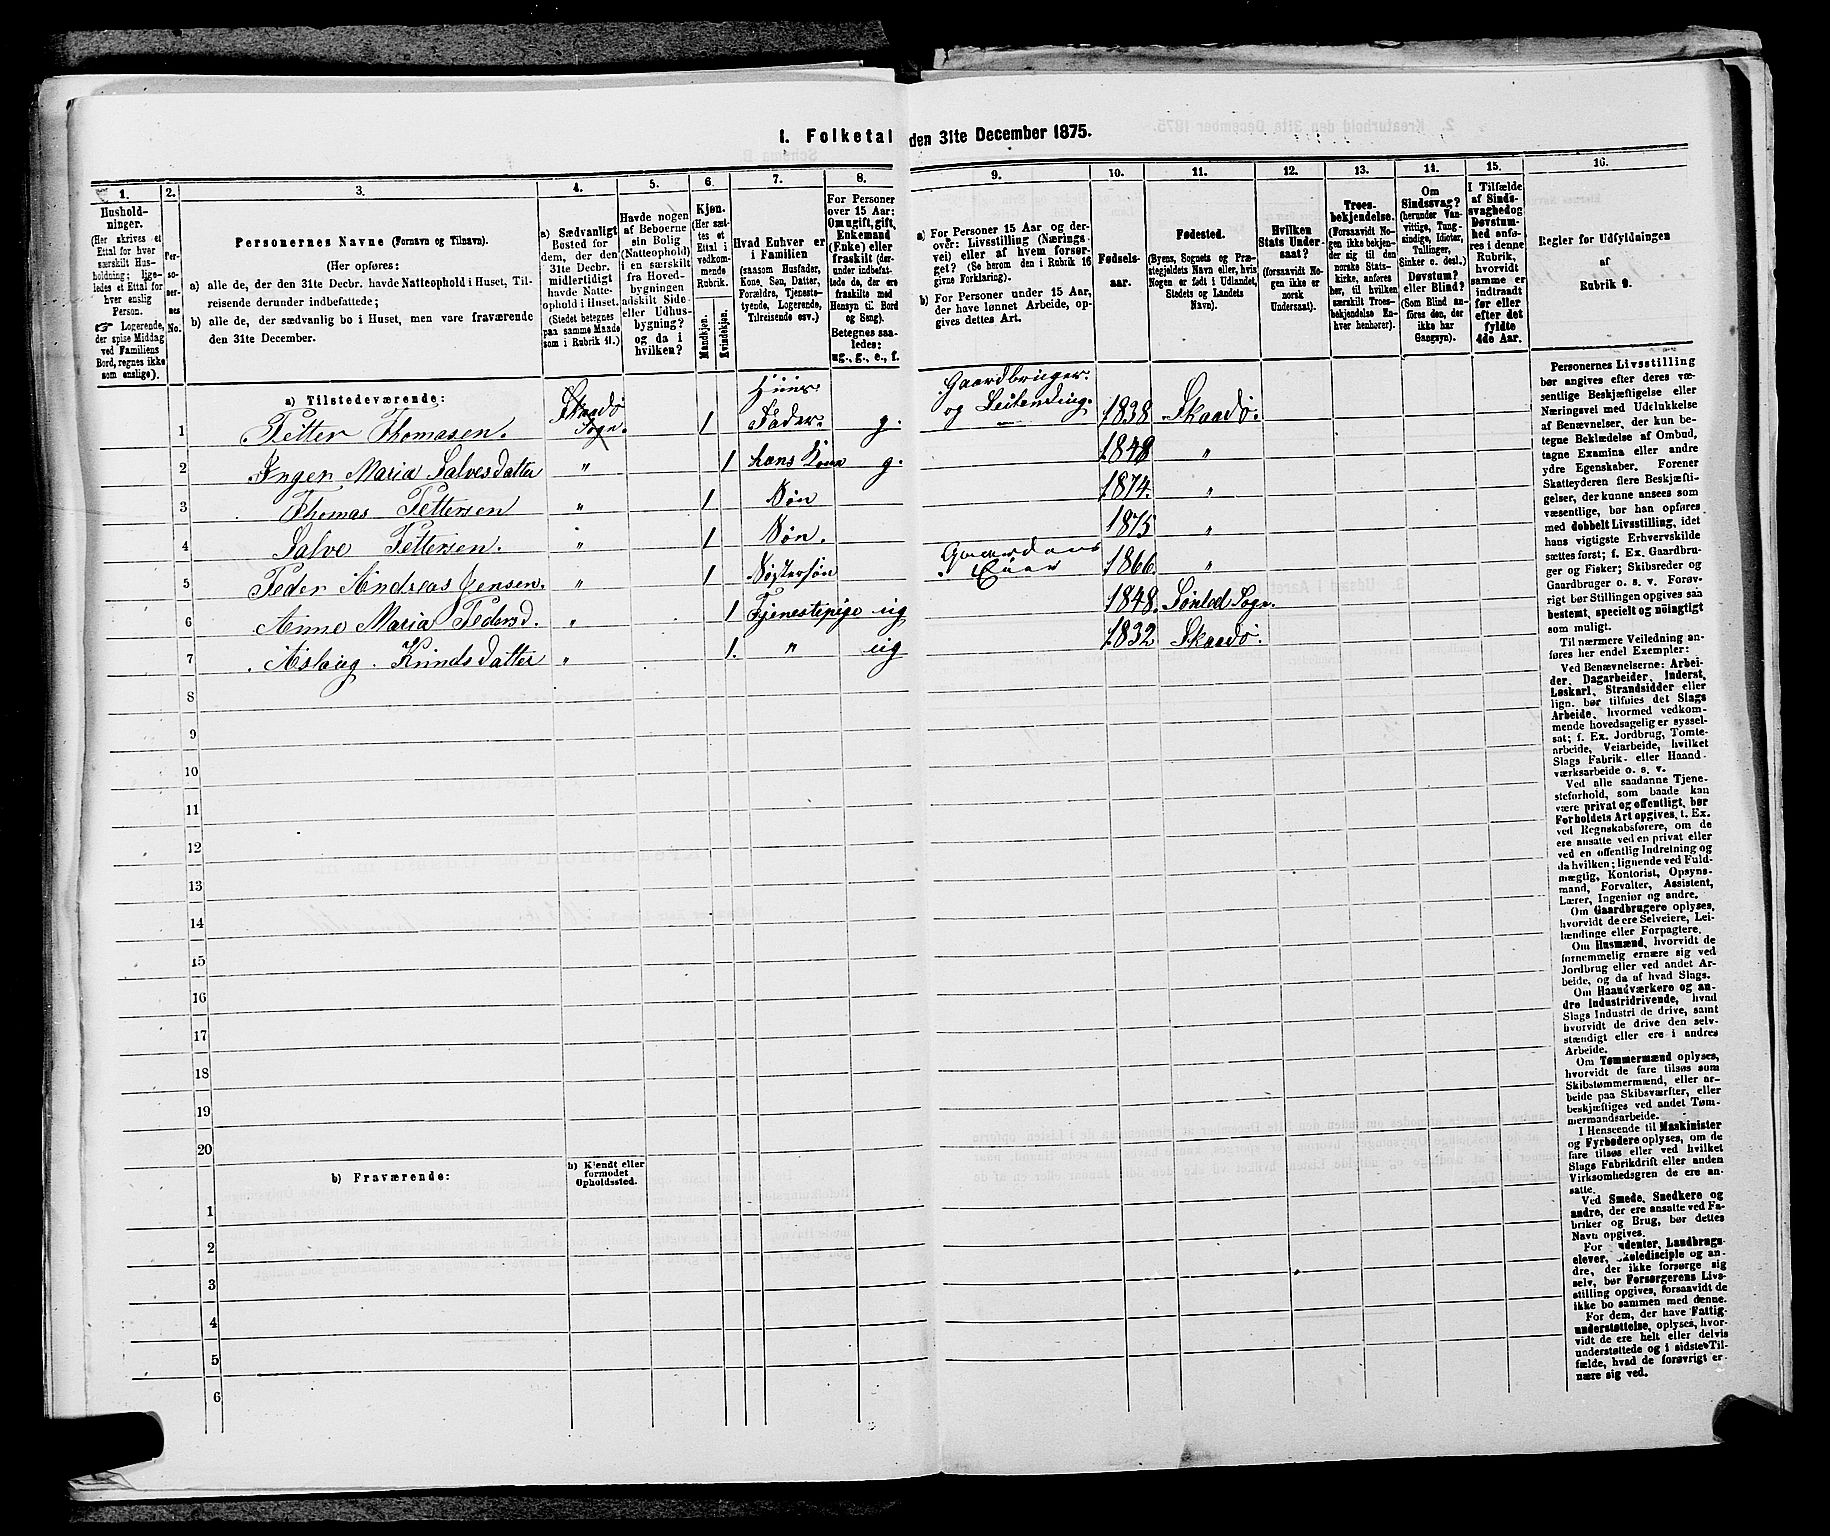 1. Folketal den 31te December 1875.
1.
2.
3.
4.
5.
6.
7.
8.
9.
10.
11.
12.
13.
14.
15.
16.
Hushold-
ninger.
(Her skrives et
Ettal for hver
særskilt Hus-
holdning; lige-
ledes et Ettal for
hver enslig
Person.
☞ Logerende,
der spise Middag
ved Familiens
Bord, regnes ikke
som enslige).
Per-
so-
ner-
nes
No.
Personernes Navne (Fornavn og Tilnavn).
(Her opføres:
a) alle de, der den 31te Decbr. havde Natteophold i Huset, Til-
reisende derunder indbefattede;
b) alle de, der sædvanlig bo i Huset, men vare fraværende
den 31te December.
a) Sædvanligt
Bosted for
dem, der den
31te Decbr.
midlertidigt
havde Natte-
ophold i Huset.
(Stedet betegnes
paa samme Maade
som i Rubrik 11.)
Havde nogen
af Beboerne
sin Bolig
(Natteophold)
i en særskilt
fra Hoved-
bygningen
adskilt Side-
eller Udhus-
bygning?
og da i
hvilken?
Kjøn.
(Her sæt-
tes et
Ettal i
vedkom-
mende
Rubrik.
Mandkjøn.
Kvindekjøn.
Hvad Enhver er
i Familien
(saasom Husfader,
Kone, Søn, Datter,
Forældre, Tjeneste-
tyende, Logerende,
Tilreisende osv.)
For Personer
over 15 Aar:
Om ugift, gift,
Enkemand
(Enke) eller
fraskilt (der-
under indbefat-
tede de, der ere
fraskilte med
Hensyn til Bord
og Seng).
Betegnes saa-
ledes:
ug., g., e., f.
a) For Personer 15 Aar og der-
over: Livsstilling (Nærings-
vei) eller af hvem forsør-
get? (Se herom den i Rubrik 16
givne Forklaring).
b) For Personer under 15 Aar,
der have lønnet Arbeide, op-
gives dettes Art.
Fødsels-
aar.
Fødested.
(Byens, Sognets og Præ-
stegjeldets Navn eller, hvis
Nogen er født i Udlandet,
Stedets og Landets
Navn).
Hvilken
Stats Under-
saat?
(forsaavidt No-
gen ikke er
norsk
Undersaat).
Troes-
bekjendelse.
(Forsaavidt No-
gen ikke bekjen-
der sig til den
norske Stats-
kirke, anføres
her, til hvilken
særskilt Troes-
bekjendelse En-
hver henhører).
Om
Sindssvag?
(herunder Van-
vittige, Tung-
sindige, Idioter,
Tullinger,
Sinker o. desl.)
Døvstum?
eller Blind?
(Som Blind an-
føres den, der
ikke har
Gangsyn).
I Tilfælde
af Sinds-
svaghed og
Døvstum-
hed anfø-
res i denne
Rubrik,
hvorvidt
samme er
indtraadt
før eller
efter det
fyldte
4de Aar.
Regler for Udfyldningen
af
Rubrik 9.
a) Tilstedeværende:
1 Petter Thomasen. Skaadö Sogn. 1 Huus- Fader. g. Gaardbruger. og Leilending. 1838 Skaadö.
2 Inger Maria Salvesdatter " 1 hans Kone g. 1848 "
3 Thomas Pettersen " 1 Søn 1874. "
4 Salve Pettersen. " 1 Søn. 1875 "
5 Peder Andreas Jensen. " 1 Søstersøn Gaardens 1866. "
6 Anne Maria Pedersd. " 1 Tjenestepige ug 1848. Söndeled Sogn.
7 Aslaug Knudsdatter " 1. " ug 1832 Skaadö.
8
9
10
11
12
13
14
15
16
17
18
19
20
b) Fraværende:
b) Kjendt eller
formodet
Opholdssted.
1
2
3
4
5
6
Personernes Livsstilling
bør angives efter deres væ-
sentlige Beskjæftigelse eller
Næringsvei med Udelukkelse
af Benævnelser, der kun be-
tegne Beklædelse af Ombud,
tagne Examina eller andre
ydre Egenskaber. Forener
Skatteyderen flere Beskjæfti-
gelser, der kunne ansees som
væsentlige, bør han opføres
med dobbelt Livsstilling, idet
hans vigtigste Erhvervskilde
sættes først; f. Ex. Gaardbru-
ger og Fisker; Skibsreder og
Gaardbruger o. s. v. Forøv-
rigt bør Stillingen opgives saa
bestemt, specielt og nöiagtigt
som muligt.
Til nærmere Veiledning an-
føres her endel Exempler:
Ved Benævnelserne: Arbei-
der, Dagarbeider, Inderst,
Løskarl, Strandsidder eller
lign. bør tilføies det Slags
Arbeide, hvormed vedkom-
mende hovedsagelig er syssel-
sat; f. Ex. Jordbrug, Tomte-
arbeide, Veiarbeide, hvilket
Slags Fabrik- eller Haand-
værksarbeide o. s. v.
Ved alle saadanne Tjene-
steforhold, som baade kan
være privat og offentligt, bør
Forholdets Art opgives, t. Ex.
ved Regnskabsførere, om de
ere ansatte ved en privat eller
ved en offentlig Indretning og
da hvilken; lignende ved Fuld-
mægtig, Kontorist, Opsyns-
mand, Forvalter, Assistent,
Lærer, Ingeniør og andre.
Om Gaardbrugere oplyses,
hvorvidt de ere Selveiere, Lei-
lændinge eller Forpagtere.
Om Husmænd, hvorvidt de
fornemmelig ernære sig ved
Jordbrug eller ved andet Ar-
beide, og da af hvad Slags.
Om Haandværkere og an-
dre Industridrivende, hvad
Slags Industri de drive, samt
hvorvidt de drive den selv-
stændigt eller ere i andres
Arbeide.
Om Tømmermænd oplyses,
hvorvidt de fare tilsøs som
Skibstømmermænd, eller ar-
beide paa Skibsværfter, eller
beskjæftiges ved andet Tøm-
mermandsarbeide.
I Henseende til Maskinister
og Fyrbødere oplyses, om de
fare tilsøs eller ved hvilket
Slags Fabrikdrift eller anden
Virksomhedsgren de ere an-
satte.
Ved Smede, Snedkere og
andre, der ere ansatte ved Fa-
briker og Brug, bør dettes
Navn opgives.
For Landbrugs-
elever, og an-
dre, der ikke forsørge sig
selv, bør Forsørgerens Livs-
stilling opgives, forsaavidt de
ikke bo sammen med denne.
For dem, der have Fattig-
understøttelse, oplyses, hvor-
vidt de ere helt eller delvis
understøttede og i sidste Til-
fælde, hvad de forøvrigt er-
nære sig ved.